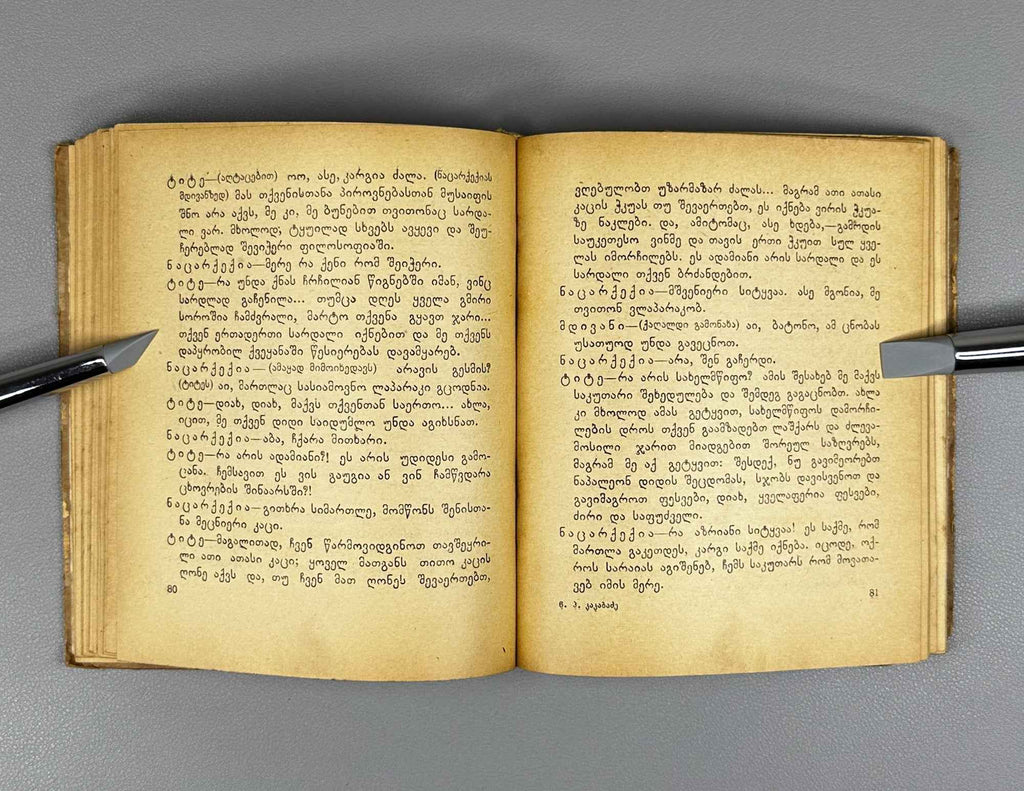 ტიტე—(აღტაცებით) ოო, ასე, კარგია ძალა. (ნაცარქექიას
მდივანზედ) მას თქვენისთანა პიროვნებასთან მუსაიფის
შნო არა აქვს, მე კი, მე ბუნებით თვითონაც სარდა-
ლი ვარ. მხოლოდ, ტყუილად სხვებს ავყევი და შეუ-
ჩერებლად შევიჭერი ფილოსოფიაში.
ნაცარქექია—მერე რა ქენი რომ შეიჭერი.
ტიტე—რა უნდა ქნას ჩრჩილიან წიგნებში იმან, ვინც
სარდლად გაჩენილა... თუმცა დღეს ყველა გმირი
სოროშია ჩამძვრალი, მარტო თქვენა გყავთ ჯარი...
თქვენ ერთადერთი სარდალი იქნებით და მე თქვენს
დაპყრობილ ქვეყანაში წესიერებას დავამყარებ.
ნაცარქექია—(ამაყად მიმოიხედავს) არავის გესმის?
(ტიტეს) აი, მართლაც სასიამოვნო ლაპარაკი გცოდნია.
ტიტე—დიახ, დიახ, მაქვს თქვენთან საერთო... ახლა,
იცით, მე თქვენ დიდი საიდუმლო უნდა აგიხსნათ.
ნაცარქექია—აბა, ჩქარა მითხარი.
ტიტე—რა არის ადამიანი?! ეს არის უდიდესი გამო-
ცანა. ჩემსავით ეს ვის გაუგია ან ვინ ჩამწვდარა
ცხოვრების შინაარსში?!
ნაცარქექია—გითხრა სიმართლე, მომწონს შენისთა-
ნა მეცნიერი კაცი.
ტიტე—მაგალითად, ჩვენ წარმოვიდგინოთ თავშეყრი-
ლი ათი ათასი კაცი; ყოველ მათგანს თითო კაცის
ღონე აქვს და, თუ ჩვენ მათ ღონეს შევაერთებთ,
80
ვღებულობთ უზარმაზარ ძალას... მაგრამ ათი ათასი
კაცის ჭკუას თუ შევაერთებთ, ეს იქნება ვირის ჭკუა-
ზე ნაკლები. და, ამიტომაც, ასე ხდება,—გამოდის
საუკეთესო ვინმე და თავის ერთი ჭკუით სულ ყვე-
ლას იმორჩილებს. ეს ადამიანი არის სარდალი და ეს
სარდალი თქვენ ბრძანდებით.
ნაცარქექია—მშვენიერი სიტყვაა. ასე მგონია, მე
თვითონ ვლაპარაკობ.
მდივანი—(ქაღალდი გამონახა) აი, ბატონო, ამ ცნობას
უსათუოდ უნდა გავეცნოთ.
ნაცარქექია—არა, შენ გაჩერდი.
ტიტე—რა არის სახელმწიფო? ამის შესახებ მე მაქვს
საკუთარი შეხედულება და შემდეგ გაგაცნობთ. ახლა
კი მხოლოდ ამას გეტყვით, სახელმწიფოს დამორჩი-
ლების დროს თქვენ გაამზადებთ ლაშქარს და ძლევა-
მოსილი ჯარით მიადგებით შორეულ საზღვრებს,
მაგრამ მე აქ გეტყვით: შესდექ, ნუ გავიმეორებთ
ნაპალეონ დიდის შეცდომას, სჯობს დავისვენოთ და
გავიმაგროთ ფესვები, დიახ, ყველაფერია ფესვები,
ძირი და საფუძველი.
ნაცარქექია—რა აზრიანი სიტყვაა! ეს საქმე, რომ
მართლა გაკეთდეს, კარგი საქმე იქნება. იცოდე, ოქ-
როს სარაიას აგიშენებ, ჩემს საკუთარს რომ მოვათა-
ვებ იმის მერე.
81
6. პ. კაკაბაძე